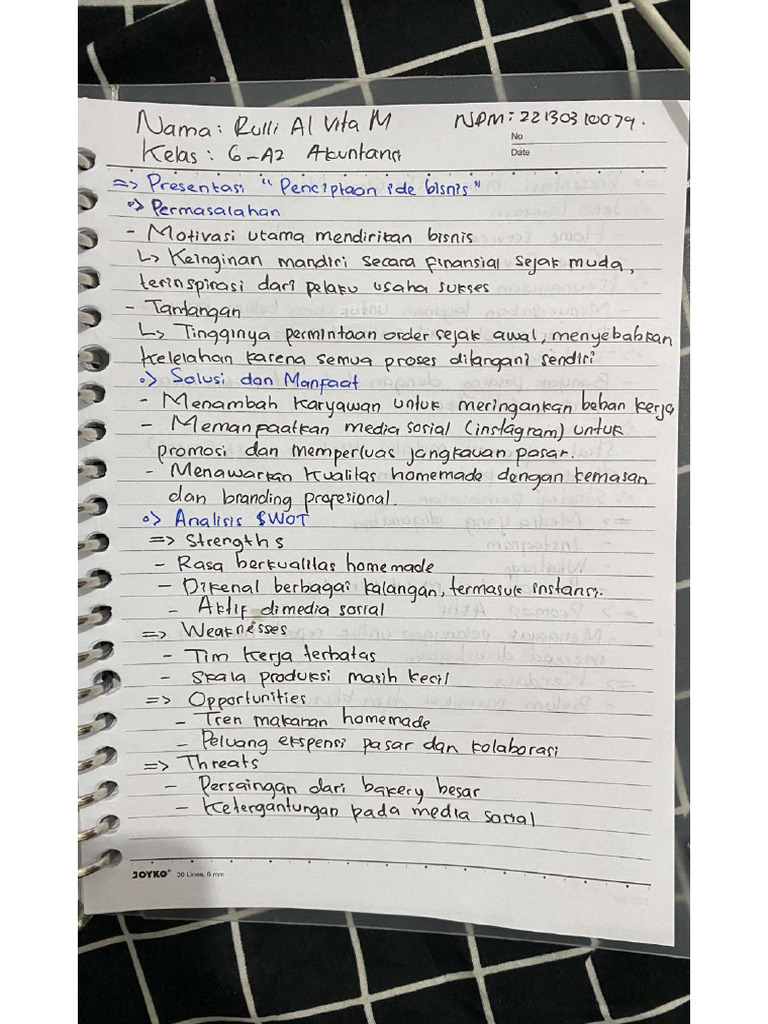 Nama: Rulli Al Vita M NPM: 22130310079.
No
Kelas: 6-A2 Akuntansi
Date
=> Presentasi "Penciptaan ide bisnis"
°> Permasalahan
- Motivasi utama mendirikan bisnis
↳ Keinginan mandiri secara finansial sejak muda,
terinspirasi dari pelaku usaha sukses
- Tantangan
↳ Tingginya permintaan order sejak awal, menyebabkan
kelelahan karena semua proses ditangani sendiri
°> Solusi dan Manfaat
- Menambah karyawan untuk meringankan beban kerja
- Memanfaatkan media sosial (instagram) untuk
promosi dan memperluas jangkauan pasar.
- Menawarkan kualitas homemade dengan kemasan
dan branding profesional.
°> Analisis SWOT
=> Strengths
- Rasa berkualitas homemade
- Dikenal berbagai kalangan, termasuk instansi.
- Aktif di media sosial
=> Weaknesses
- Tim kerja terbatas
- Skala produksi masih kecil
=> Opportunities
- Tren makanan homemade
- Peluang ekspensi pasar dan kolaborasi
=> Threats
- Persaingan dari bakery besar
- Ketergantungan pada media sosial
JOYKO® 30 Lines, 6 mm